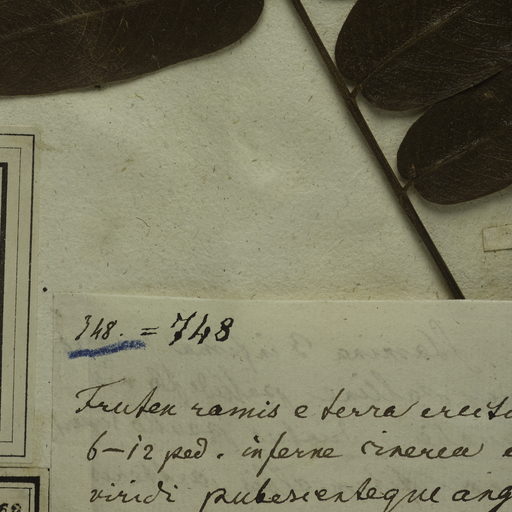 348. = 748
Frutex ramis e terra
6-12 ped. inferne cinerea
viridi pubescenteque